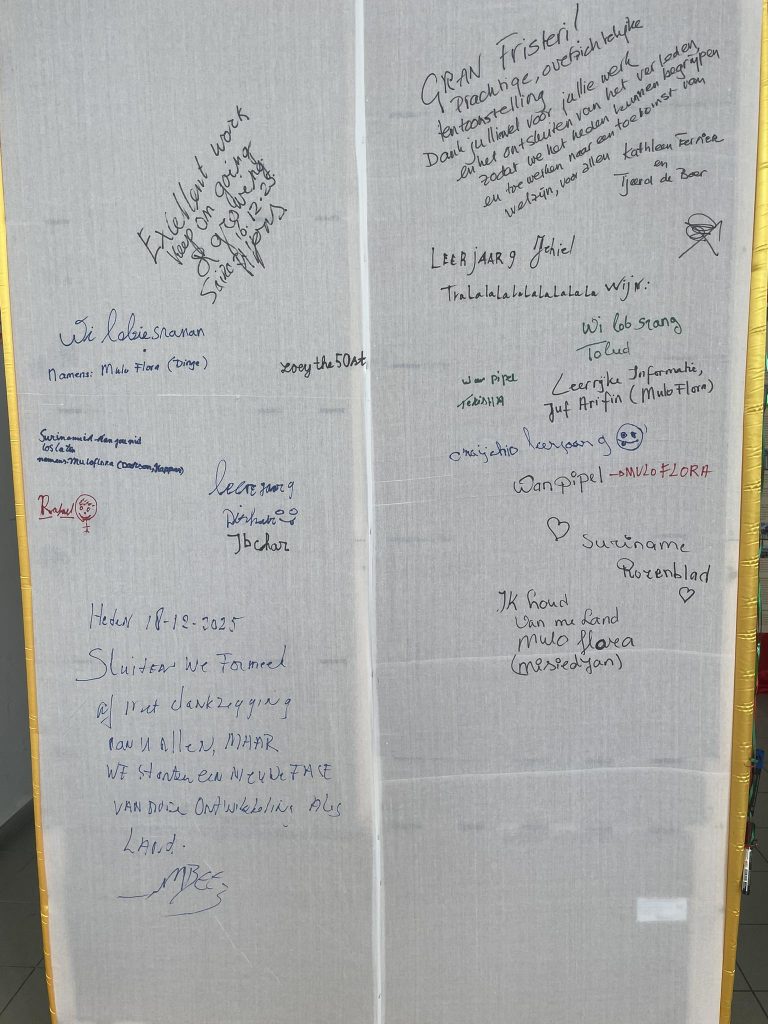 Excellent work
Keep on going
& growing
16.12.25
Wi lobie sranan
Namens: Mulo Flora (Dinge)
zoey the 50st
Surinamud dan gounid
los laten
namens: Muloflora
Rafael
leerejaar 9
Jbchar
Heden 18-12-2025
Sluiten we Formeel
af met dankzegging
aan u Allen, MAAR
WE starten een NIEUWE FASE
VAN ONZE Ontwikkeling Als
LAND.
MBEE
GRAN Fristeri!
Prachtige, overzichtelijke
tentoonstelling
Dank jullie wel voor jullie werk
en het ontsluiten van het verleden,
zodat we het heden kunnen begrijpen
en toe werken naar een toekomst van
welzijn, voor allen
Kathleen Ferrier
en
Tjeerd de Boer
LEERJAAR 9 Jehiel
Tralalalalalalalalala wijn:
Wi lob srang
Tolud
Wan pipel
TERISHA
Leerrijke Informatie,
Juf Arifin (Mulo Flora)
leerjaar 9
Wan pipel → MULO FLORA
Suriname
Rozenblad
Ik houd
Van me Land
Mulo flora
(misiedjan)